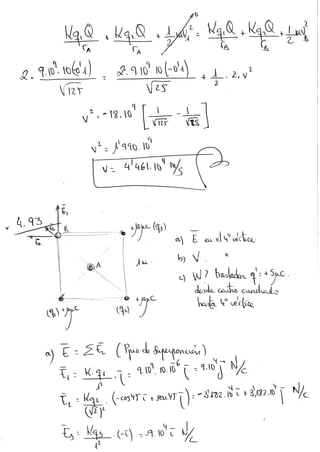 Kq₁Q/r_A + Kq₂Q/r_A + 1/2 mv_A² = Kq₁Q/r_B + Kq₂Q/r_B + 1/2 mv_B²
0
2 · 9·10⁹·10(-0'1)/√125 = 2·9·10⁹·10(-0'1)/√25 + 1/2 · 2 · v²
v² = -18·10⁹ [1/√125 - 1/√25]
v² = 1'990·10⁹
v = 4'461·10⁴ m/s
4,93
E₁
B
+10μC (q₃)
A
1m
(q₁) +10μC
(q₂) +10μC
a) E en el 4º vértice
b) V "
c) W? trasladar q' = +5μC
desde centro cuadrado
hasta 4º vértice
a) E = ΣEᵢ (Ppio de superposición)
E₁ = K·q₁/l² · j = 9·10⁹·10·10⁻⁶ j = 9·10⁴ j N/C
E₂ = Kq₂/(√2)² · (-cos45 i + sen45 j) = -3'182·10⁴ i + 3'182·10⁴ j N/C
E₃ = Kq₃/l² · (-i) = -9·10⁴ i N/C